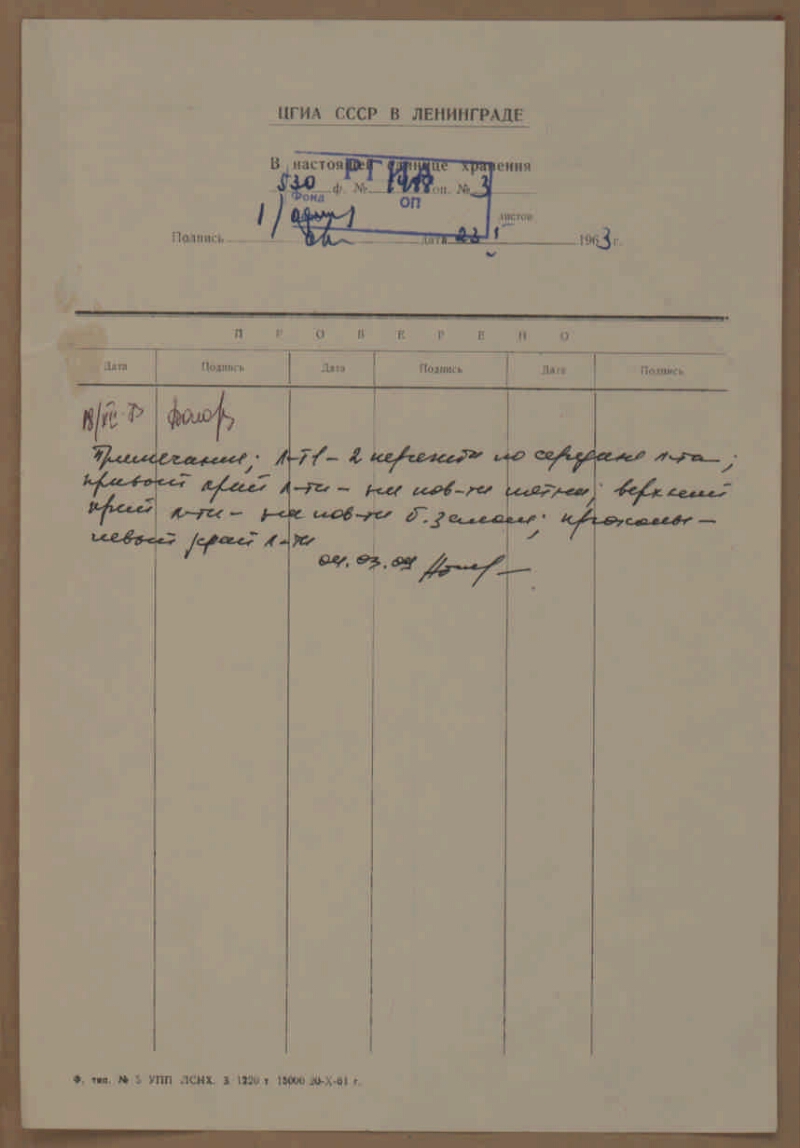 ЦГИА СССР В ЛЕНИНГРАДЕ
В настоящей единице хранения
530 ф. № оп. № 3
Фонда ОП
1/ листов
Подпись дата 23 1963 г.
ПРОВЕРЕНО
Дата Подпись Дата Подпись Дата Подпись
18/VII-
Примечание; л-т1 - 2 по середине л-та;
правый край л-та - на пов-ти пятна; верхний
край л-та - на пов-ти б. заломы; проколы -
левый край л-та
04.03.09
Ф. тип. № 5 УПП ЛСНХ. З. 1220 т 15000 20-X-61 г.